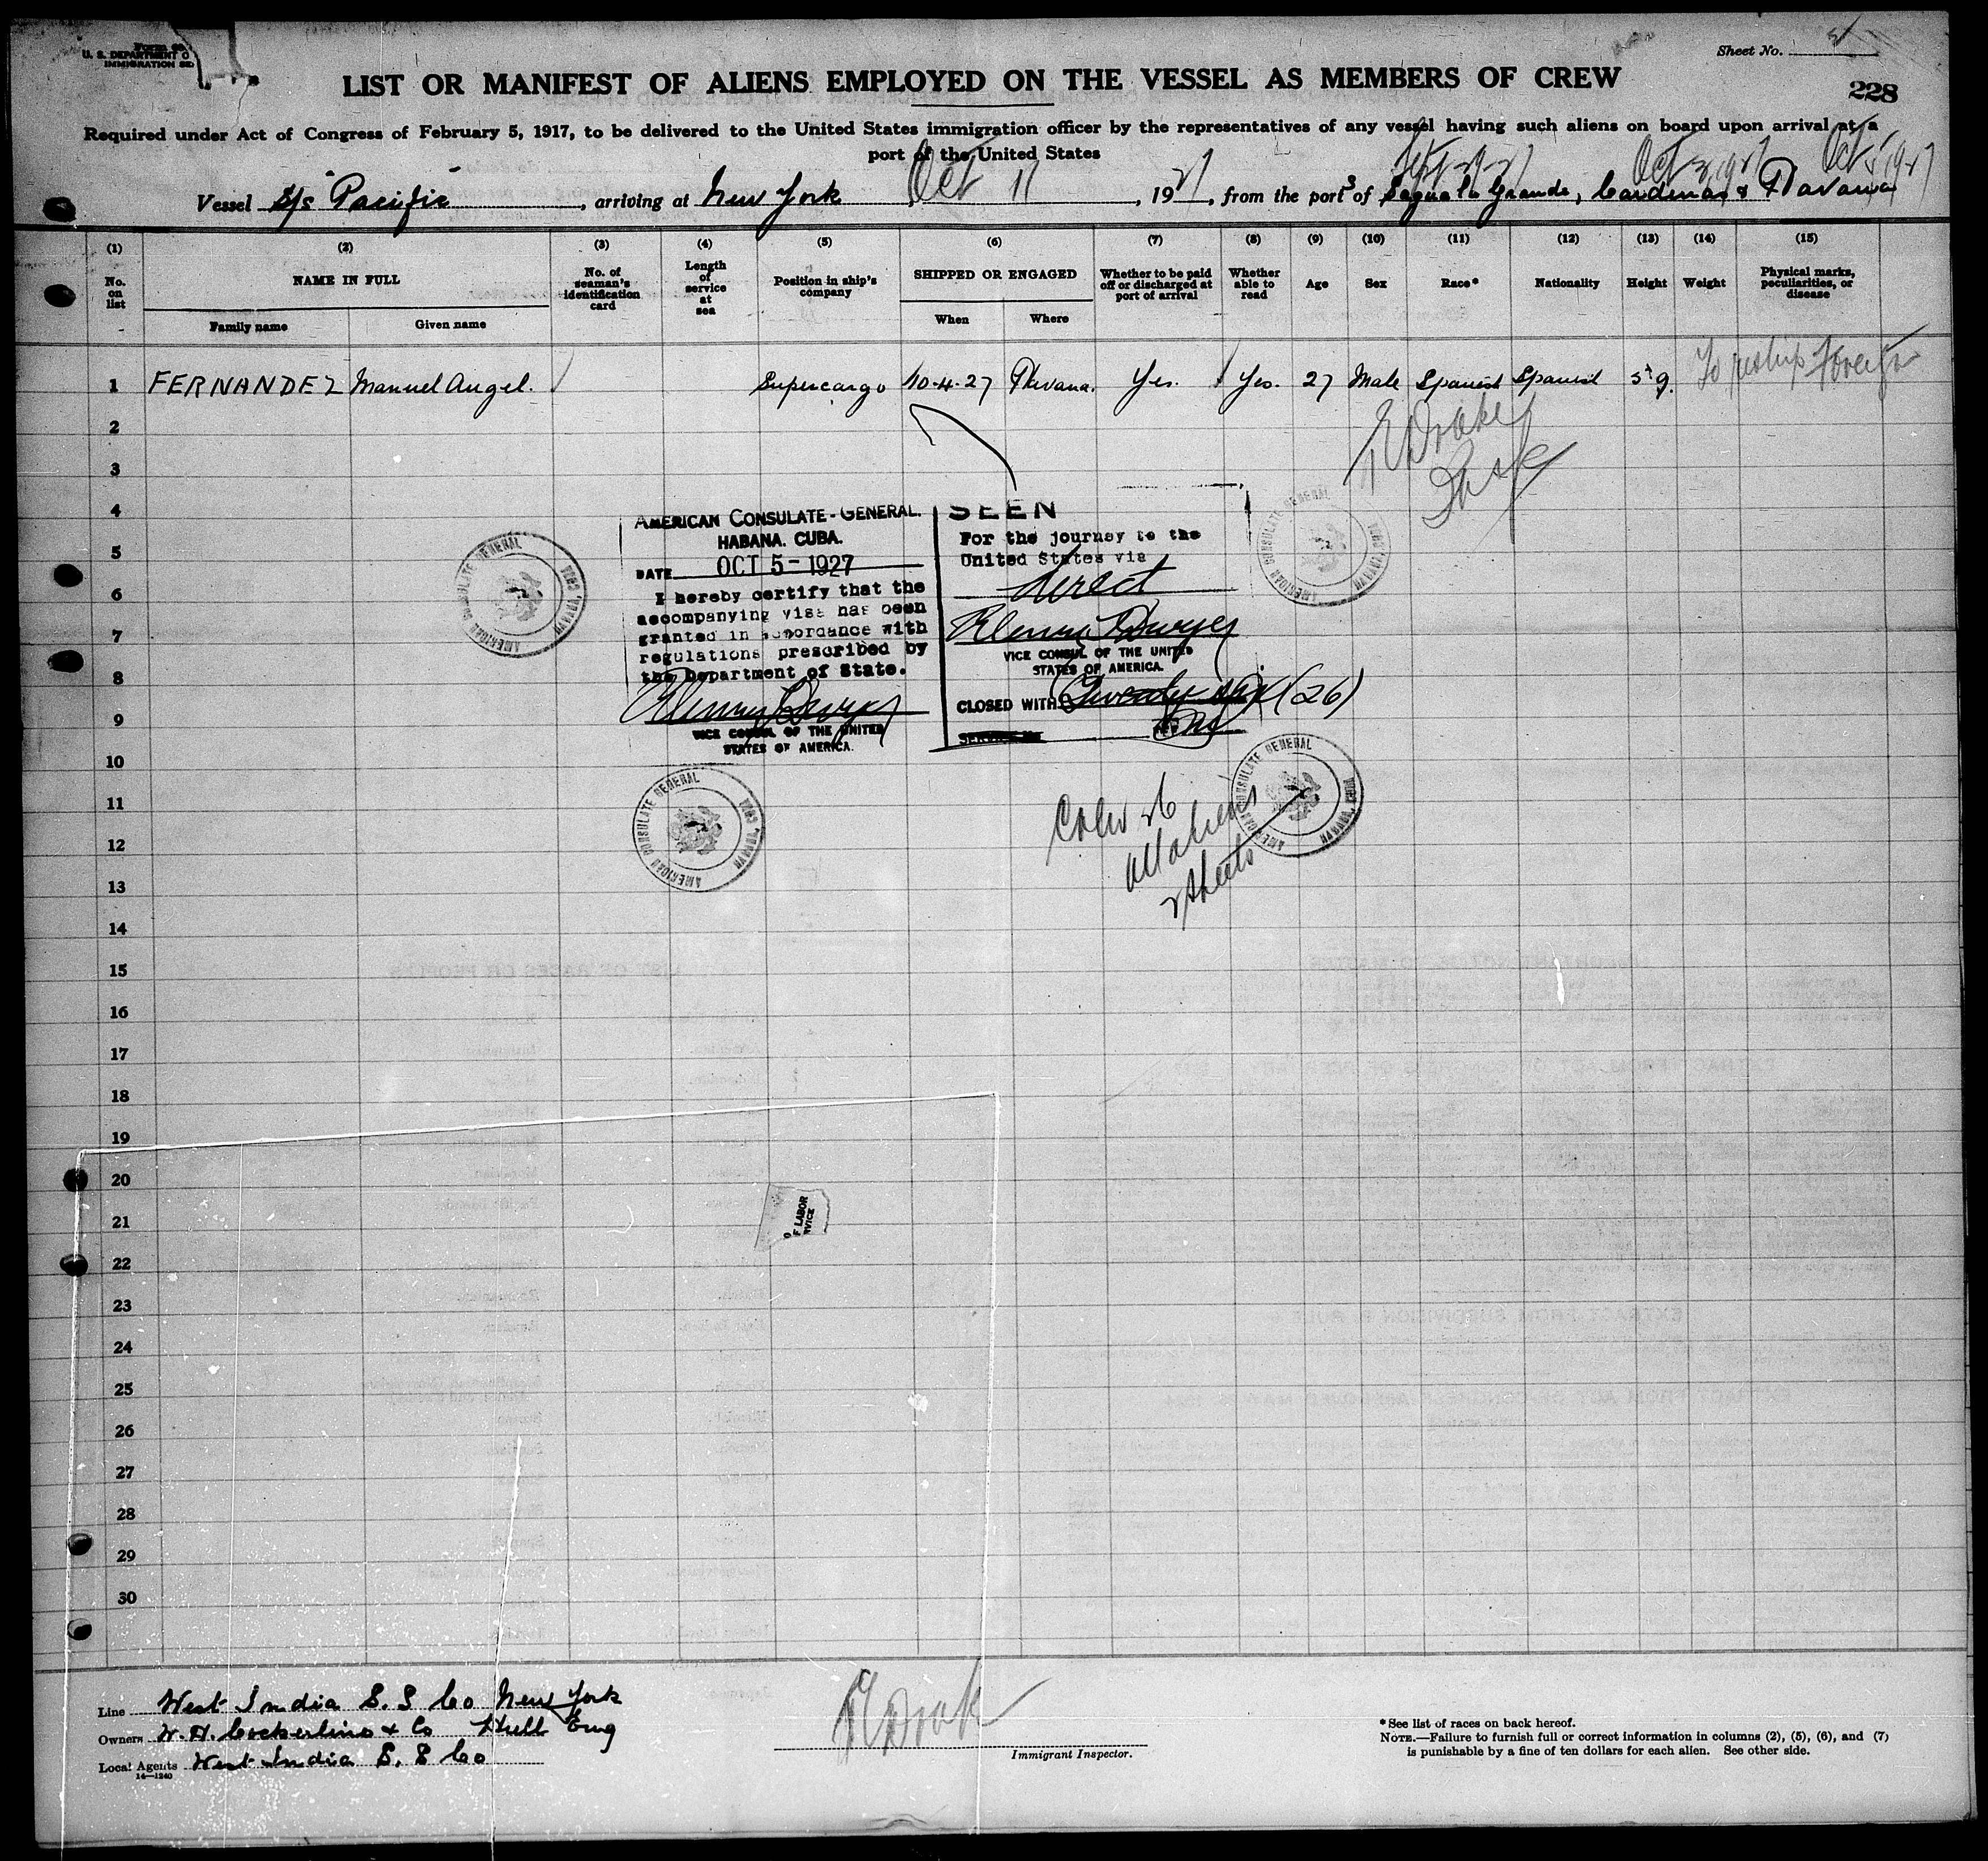 Form 
U. S. DEPARTMENT O
IMMIGRATION SE
Sheet No.
228
LIST OR MANIFEST OF ALIENS EMPLOYED ON THE VESSEL AS MEMBERS OF CREW
Required under Act of Congress of February 5, 1917, to be delivered to the United States immigration officer by the representatives of any vessel having such aliens on board upon arrival at a
port of the United States
Oct 3, 1927 Oct 5, 1927
Vessel S/S "Pacific", arriving at New York Oct 11, 1927, from the ports of Sagua la Grande, Cardenas & Havana
(1) (2) (3) (4) (5) (6) (7) (8) (9) (10) (11) (12) (13) (14) (15)
No. on list
NAME IN FULL
Family name
Given name
No. of seaman's identification card
Length of service at sea
Position in ship's company
SHIPPED OR ENGAGED
When
Where
Whether to be paid off or discharged at port of arrival
Whether able to read
Age
Sex
Race*
Nationality
Height
Weight
Physical marks, peculiarities, or disease
1 FERNANDEZ Manuel Angel. Supercargo 10-4-27 Havana. Yes. Yes. 27 Male Spanish Spanish 5'9. To reship foreign
2
3
4
5
6
7
8
9
10
11
12
13
14
15
16
17
18
19
20
21
22
23
24
25
26
27
28
29
30
Drake
AMERICAN CONSULATE-GENERAL.
HABANA. CUBA.
DATE OCT 5-1927
I hereby certify that the
accompanying visa has been
granted in accordance with
regulations prescribed by
the Department of State.
VICE CONSUL OF THE UNITED
STATES OF AMERICA.
SEEN
For the journey to the
United States via
direct
VICE CONSUL OF THE UNITED
STATES OF AMERICA.
CLOSED WITH Twenty six (26)
SERVICE No
AMERICAN CONSULATE GENERAL HAVANA, CUBA
AMERICAN CONSULATE GENERAL HAVANA, CUBA
AMERICAN CONSULATE GENERAL HAVANA, CUBA
AMERICAN CONSULATE GENERAL HAVANA, CUBA
Crew 26
all aliens
2 sheets
F LABOR
RVICE
Line West India S. S Co New York
Owners W. H. Cockerline & Co Hull Eng
Local Agents West India S. S Co
14—1240
Drake
Immigrant Inspector.
* See list of races on back hereof.
NOTE.—Failure to furnish full or correct information in columns (2), (5), (6), and (7)
is punishable by a fine of ten dollars for each alien. See other side.